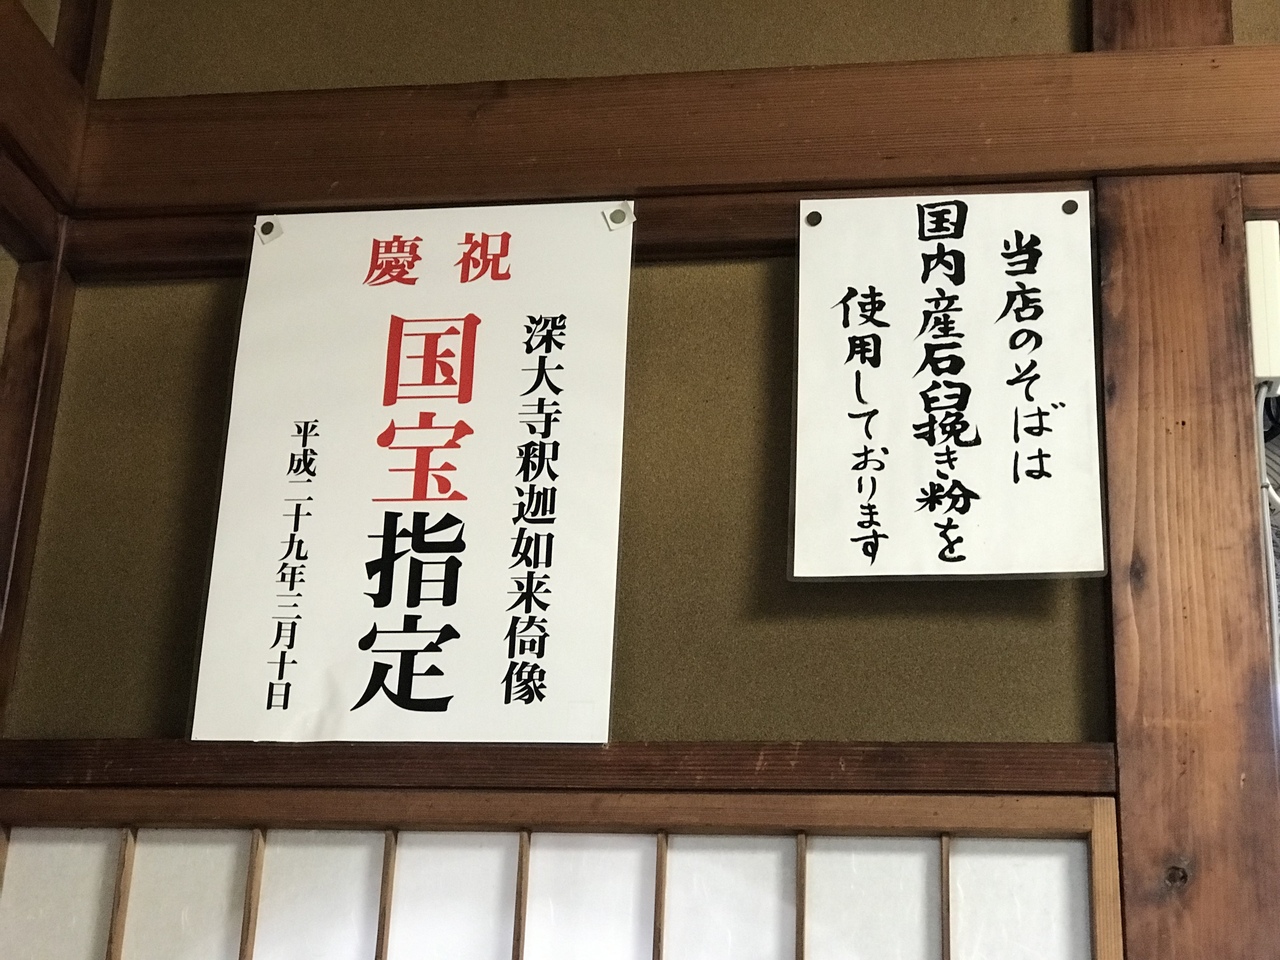 当店のそばは
国内産石臼挽き粉を
使用しております
慶祝
深大寺釈迦如来倚像
国宝指定
平成二十九年三月十日